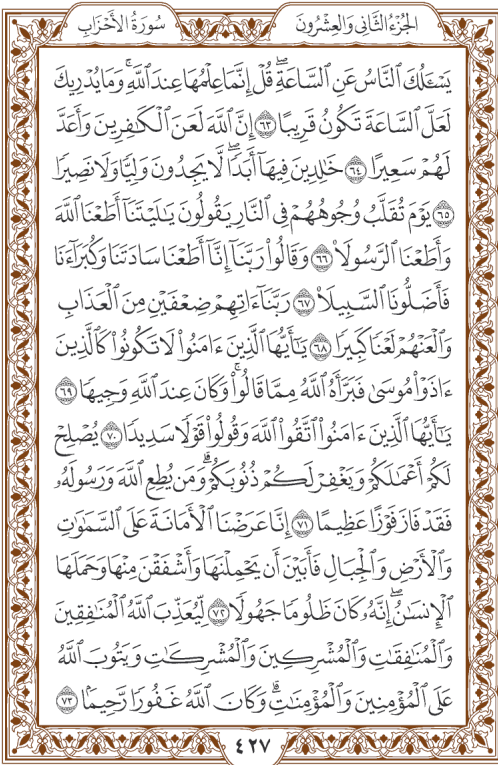 الجُزْءُ الثَّانِي وَالعِشْرُونَ سُورَةُ الأَحْزَابِ
يَسْـَٔلُكَ ٱلنَّاسُ عَنِ ٱلسَّاعَةِۖ قُلْ إِنَّمَا عِلْمُهَا عِندَ ٱللَّهِۚ وَمَا يُدْرِيكَ
لَعَلَّ ٱلسَّاعَةَ تَكُونُ قَرِيبًا ٦٣ إِنَّ ٱللَّهَ لَعَنَ ٱلْكَٰفِرِينَ وَأَعَدَّ
لَهُمْ سَعِيرًا ٦٤ خَٰلِدِينَ فِيهَآ أَبَدًاۖ لَّا يَجِدُونَ وَلِيًّا وَلَا نَصِيرًا
٦٥ يَوْمَ تُقَلَّبُ وُجُوهُهُمْ فِى ٱلنَّارِ يَقُولُونَ يَٰلَيْتَنَآ أَطَعْنَا ٱللَّهَ
وَأَطَعْنَا ٱلرَّسُولَا۠ ٦٦ وَقَالُوا۟ رَبَّنَآ إِنَّآ أَطَعْنَا سَادَتَنَا وَكُبَرَآءَنَا
فَأَضَلُّونَا ٱلسَّبِيلَا۠ ٦٧ رَبَّنَآ ءَاتِهِمْ ضِعْفَيْنِ مِنَ ٱلْعَذَابِ
وَٱلْعَنْهُمْ لَعْنًا كَبِيرًا ٦٨ يَٰٓأَيُّهَا ٱلَّذِينَ ءَامَنُوا۟ لَا تَكُونُوا۟ كَٱلَّذِينَ
ءَاذَوْا۟ مُوسَىٰ فَبَرَّأَهُ ٱللَّهُ مِمَّا قَالُوا۟ۚ وَكَانَ عِندَ ٱللَّهِ وَجِيهًا ٦٩
يَٰٓأَيُّهَا ٱلَّذِينَ ءَامَنُوا۟ ٱتَّقُوا۟ ٱللَّهَ وَقُولُوا۟ قَوْلًا سَدِيدًا ٧٠ يُصْلِحْ
لَكُمْ أَعْمَٰلَكُمْ وَيَغْفِرْ لَكُمْ ذُنُوبَكُمْۗ وَمَن يُطِعِ ٱللَّهَ وَرَسُولَهُۥ
فَقَدْ فَازَ فَوْزًا عَظِيمًا ٧١ إِنَّا عَرَضْنَا ٱلْأَمَانَةَ عَلَى ٱلسَّمَٰوَٰتِ
وَٱلْأَرْضِ وَٱلْجِبَالِ فَأَبَيْنَ أَن يَحْمِلْنَهَا وَأَشْفَقْنَ مِنْهَا وَحَمَلَهَا
ٱلْإِنسَٰنُۖ إِنَّهُۥ كَانَ ظَلُومًا جَهُولًا ٧٢ لِّيُعَذِّبَ ٱللَّهُ ٱلْمُنَٰفِقِينَ
وَٱلْمُنَٰفِقَٰتِ وَٱلْمُشْرِكِينَ وَٱلْمُشْرِكَٰتِ وَيَتُوبَ ٱللَّهُ
عَلَى ٱلْمُؤْمِنِينَ وَٱلْمُؤْمِنَٰتِۗ وَكَانَ ٱللَّهُ غَفُورًا رَّحِيمًۢا ٧٣
٤٢٧